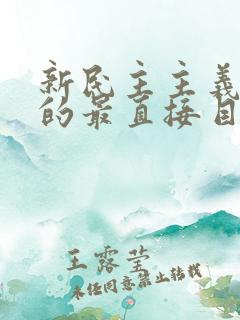 新民主主义
的最直接目
王露莹
未经同意禁止转载